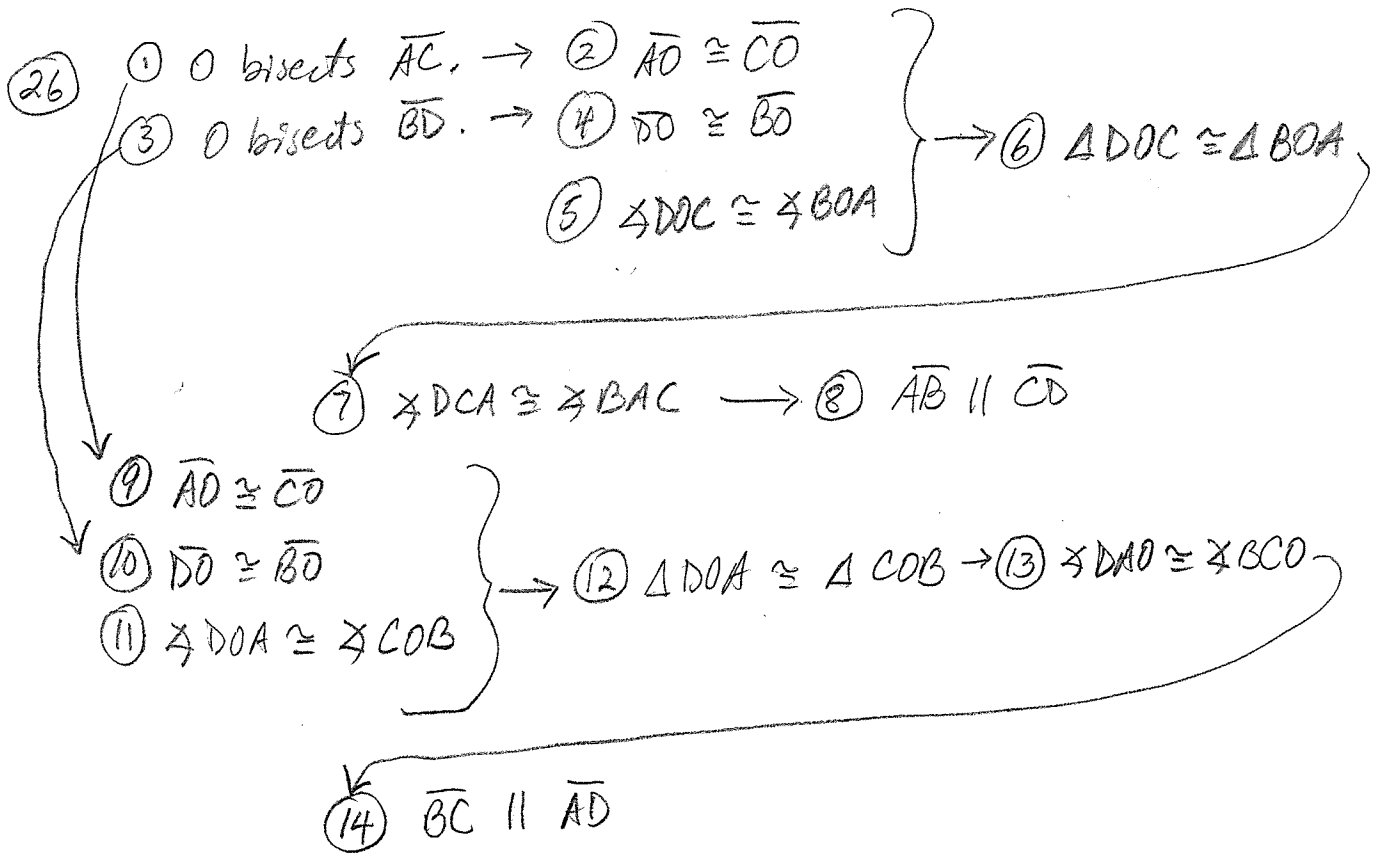 26 ① O bisects A̅C̅. → ② A̅O̅ ≅ C̅O̅
③ O bisects B̅D̅. → ④ D̅O̅ ≅ B̅O̅
⑤ ∡DOC ≅ ∡BOA
→ ⑥ ΔDOC ≅ ΔBOA
⑦ ∡DCA ≅ ∡BAC → ⑧ A̅B̅ || C̅D̅
⑨ A̅O̅ ≅ C̅O̅
⑩ D̅O̅ ≅ B̅O̅
⑪ ∡DOA ≅ ∡COB
→ ⑫ ΔDOA ≅ ΔCOB → ⑬ ∡DAO ≅ ∡BCO
⑭ B̅C̅ || A̅D̅